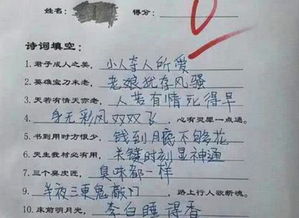 姓名: 得分: 0
诗词填空:
1.君子成人之美, 小人夺人所爱
2.英雄宝刀未老, 老娘犹存风骚
3.天若有情天亦老, 人若有情死得早
4. 身无彩凤双双飞, 心有灵犀一点通。
5.书到用时方恨少, 钱到月底不够花
6.天生我材必有用, 关键时刻显神通
7.三个臭皮匠, 臭味都一样
9. 半夜三更鬼敲门 路上行人欲断魂。
10.床前明月光, 李白睡得香